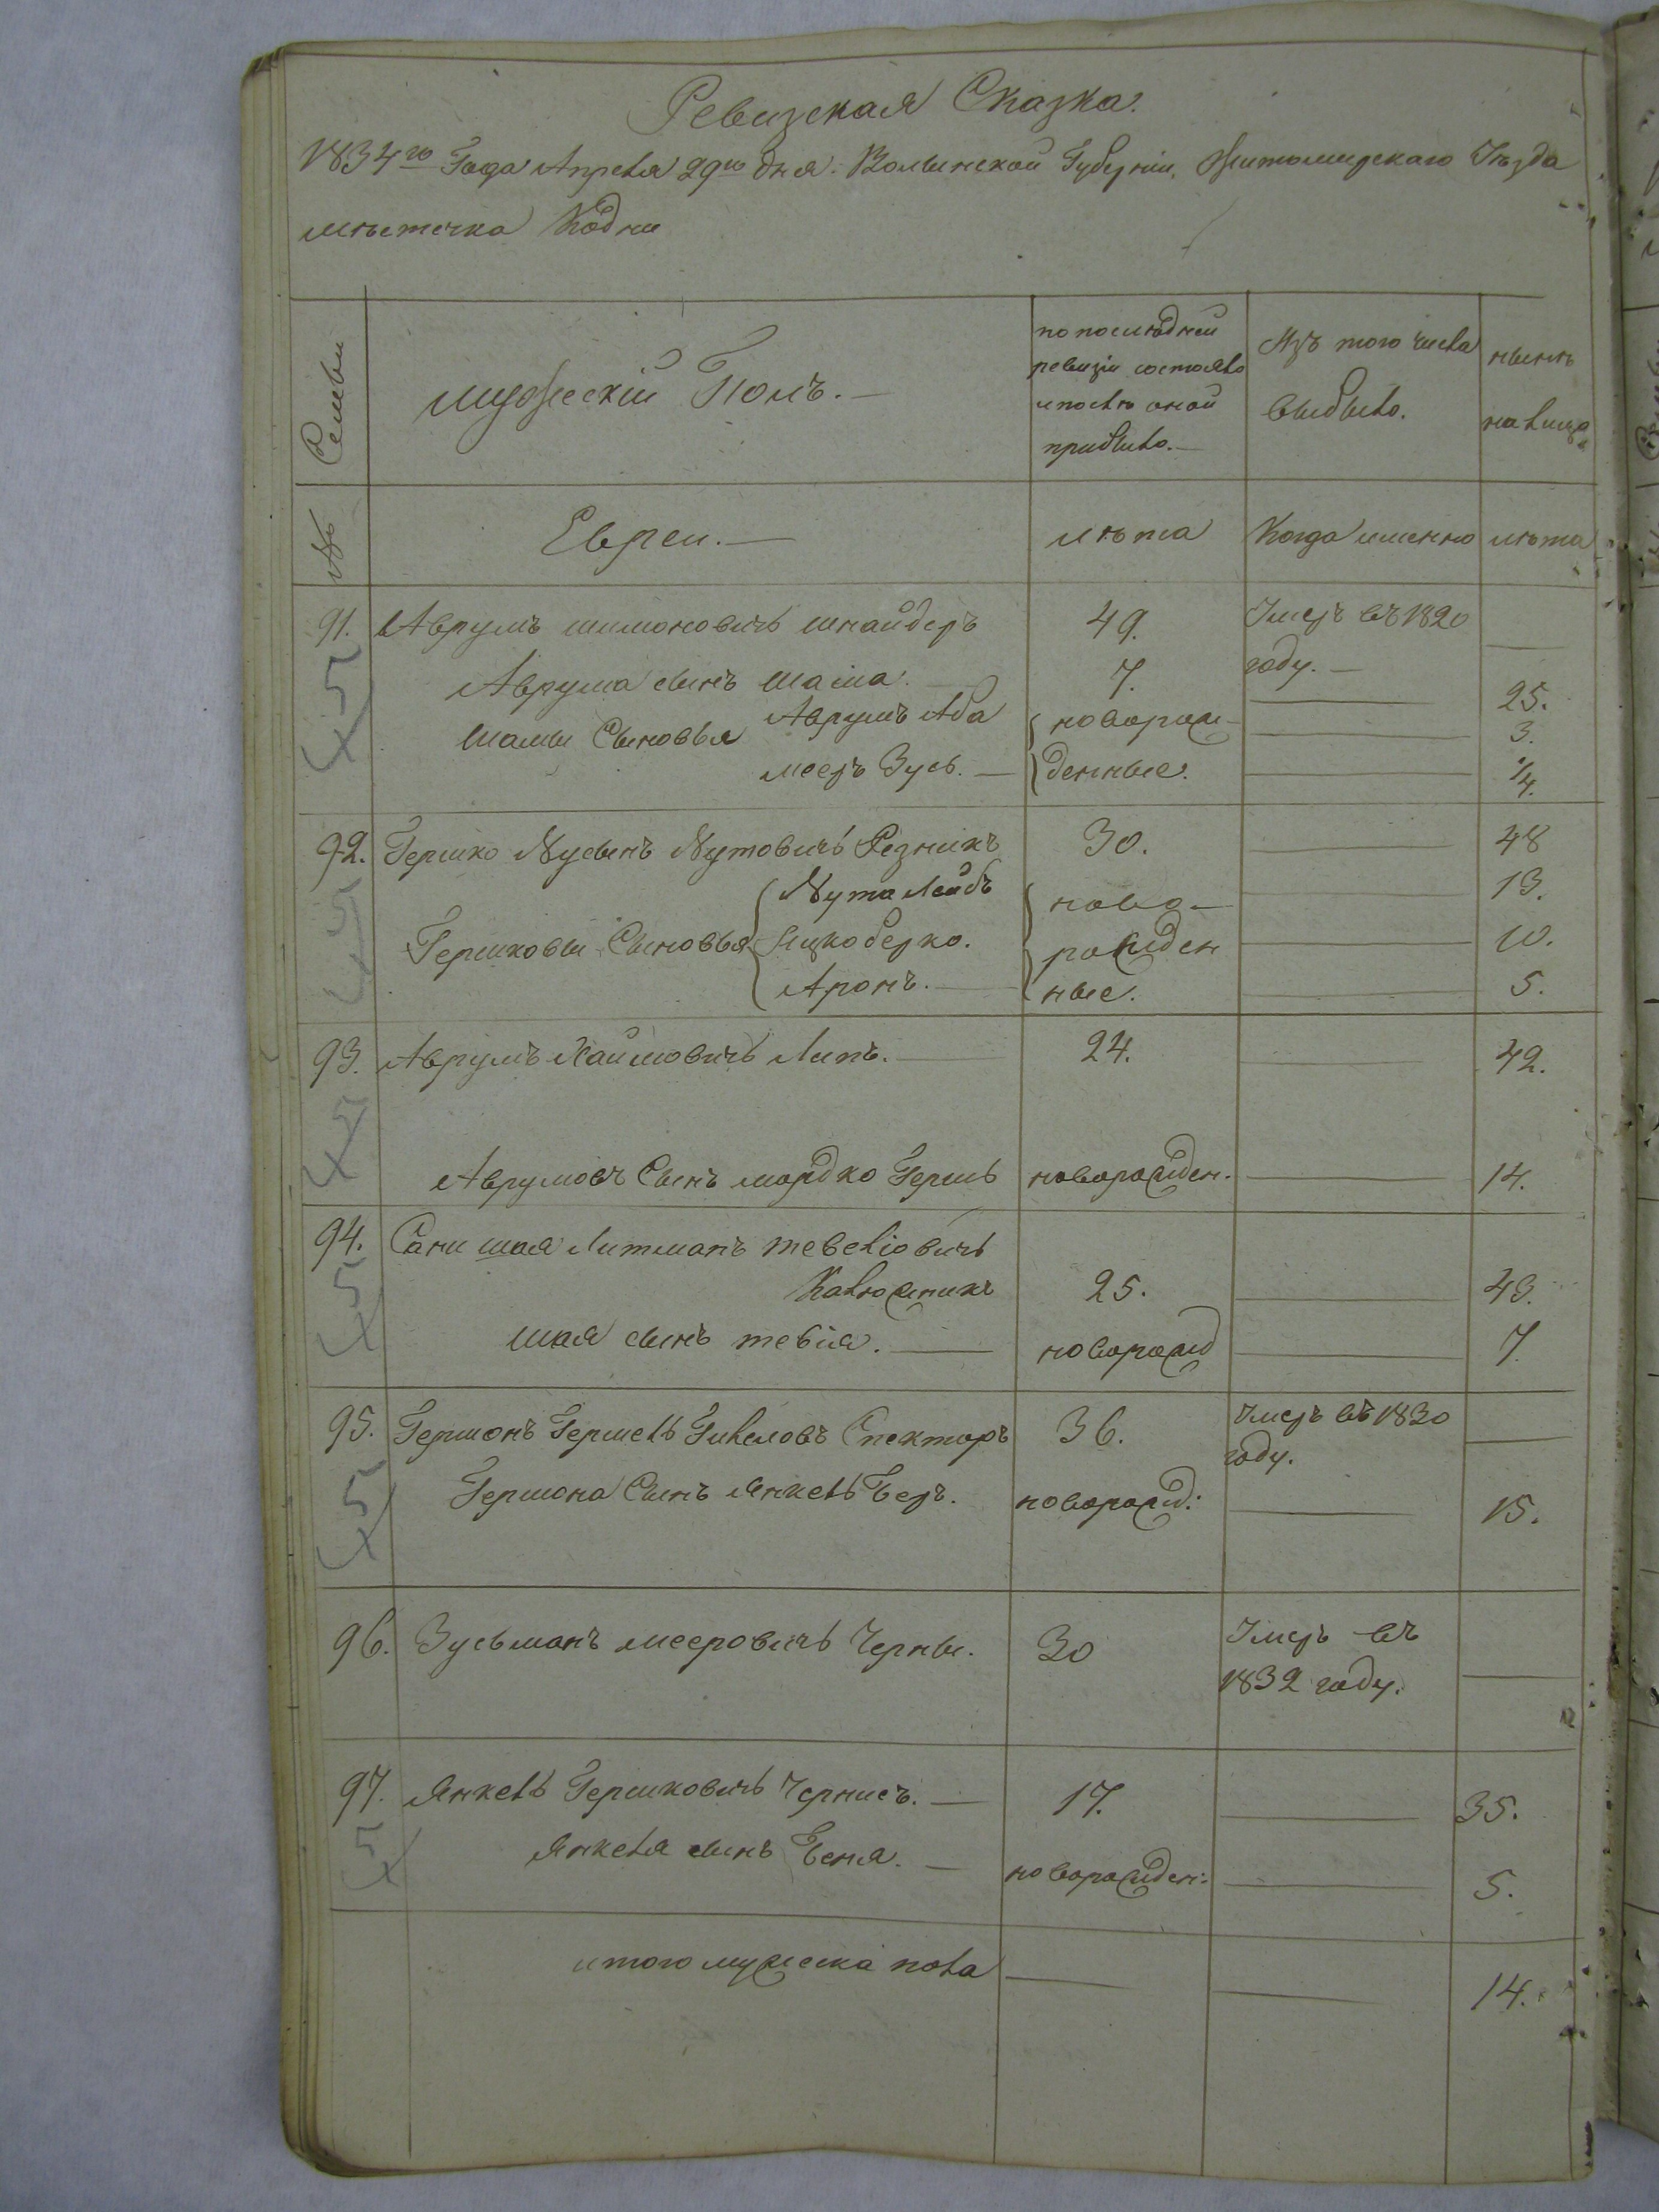 Ревизская Сказка.
1834го Года Апреля 29го дня. Волынской Губерніи, Житомирскаго Уѣзда
мѣстечка Кодни
Семьи
мужескій Полъ. —
по последней
ревизіи состояло
и послѣ оной
прибыло. —
Изъ того числа
выбыло.
нынѣ
налицо
№
Евреи. —
лѣта
Когда именно
лѣта
91. Аврумъ шимоновичъ шнайдеръ 49. Умеръ въ 1820
году. —
Аврума сынъ шама. 7. — 25.
шамы Сыновья Аврумъ Аба новорож — 3.
мееръ Зусь. — денные. — 1/4.
92. Гершко Нусынъ Нутовичъ Резникъ 30. — 48
Нута Лейбъ ново — 13.
Гершковы Сыновья Ицко берко. рожден — 10.
Аронъ. — ные. — 5.
93. Аврумъ Хаймовичъ Липъ. — 24. — 42.
Аврумовъ Сынъ мордко Гершъ новорожден. — 14.
94. шая Литманъ тевеліовичъ
25. — 43.
шая сынъ тевія. — новорожд — 7.
95. Гершонъ Гершель Спекторъ 36. Умеръ въ 1830 —
году.
Гершона Сынъ Янкель Беръ. новорожд: — 15.
96. Зусьманъ мееровичъ Черны. 30 Умеръ въ —
1832 году.
97. Янкель Гершковичъ Чернисъ. — 17. — 35.
Янкеля сынъ Беня. — новорожден: — 5.
итого мужеска пола — — 14.